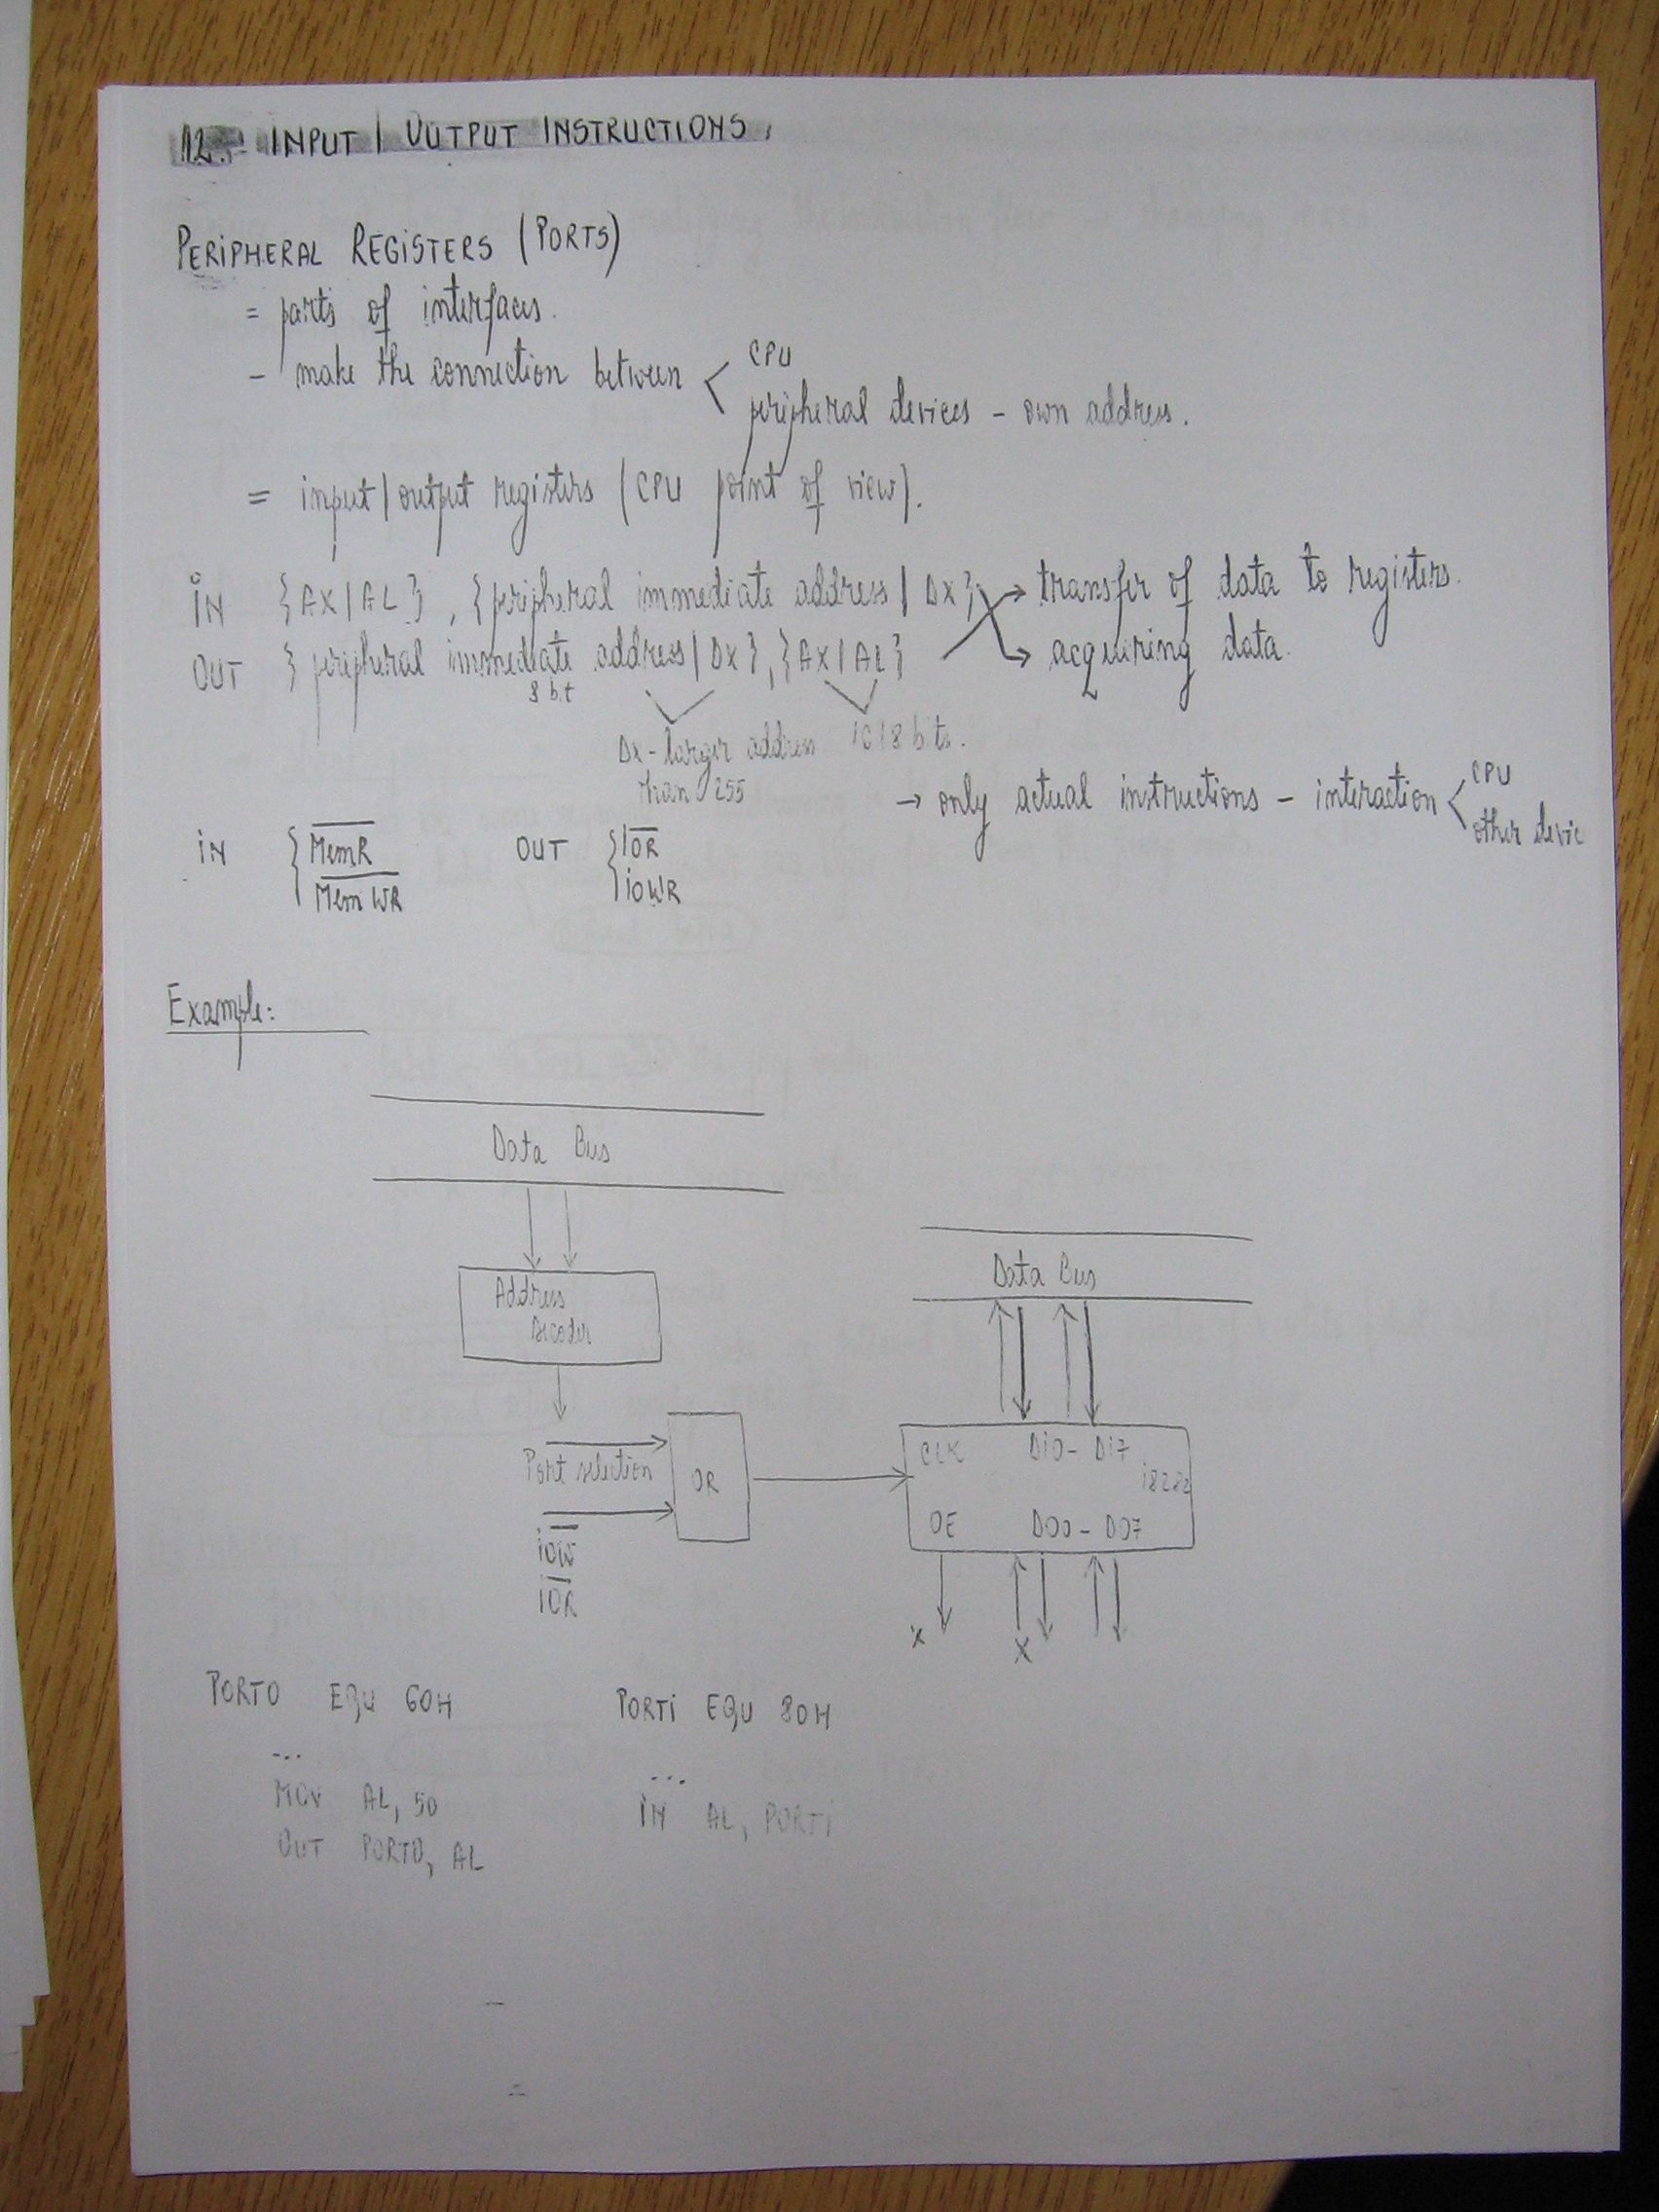 12. INPUT | OUTPUT INSTRUCTIONS.
PERIPHERAL REGISTERS (PORTS)
= parts of interfaces.
- make the connection between < CPU
peripheral devices - own address.
= input | output registers (CPU point of view).
IN {AX | AL} , {peripheral immediate address | DX} → transfer of data to registers.
OUT {peripheral immediate address | DX}, {AX | AL} → acquiring data.
8 bit
DX - larger address 16 | 8 bits.
than 255
→ only actual instructions - interaction < CPU
other devic
IN { MemR OUT { IOR
MemWR IOWR
Example:
Data Bus
Data Bus
Address
Decoder
CLK DI0 - DI7
Port selection OR i8282
OE DO0 - DO7
IOW
IOR
X X
PORTO EQU 60H PORTI EQU 80H
... ...
MOV AL, 50 IN AL, PORTI
OUT PORTO, AL